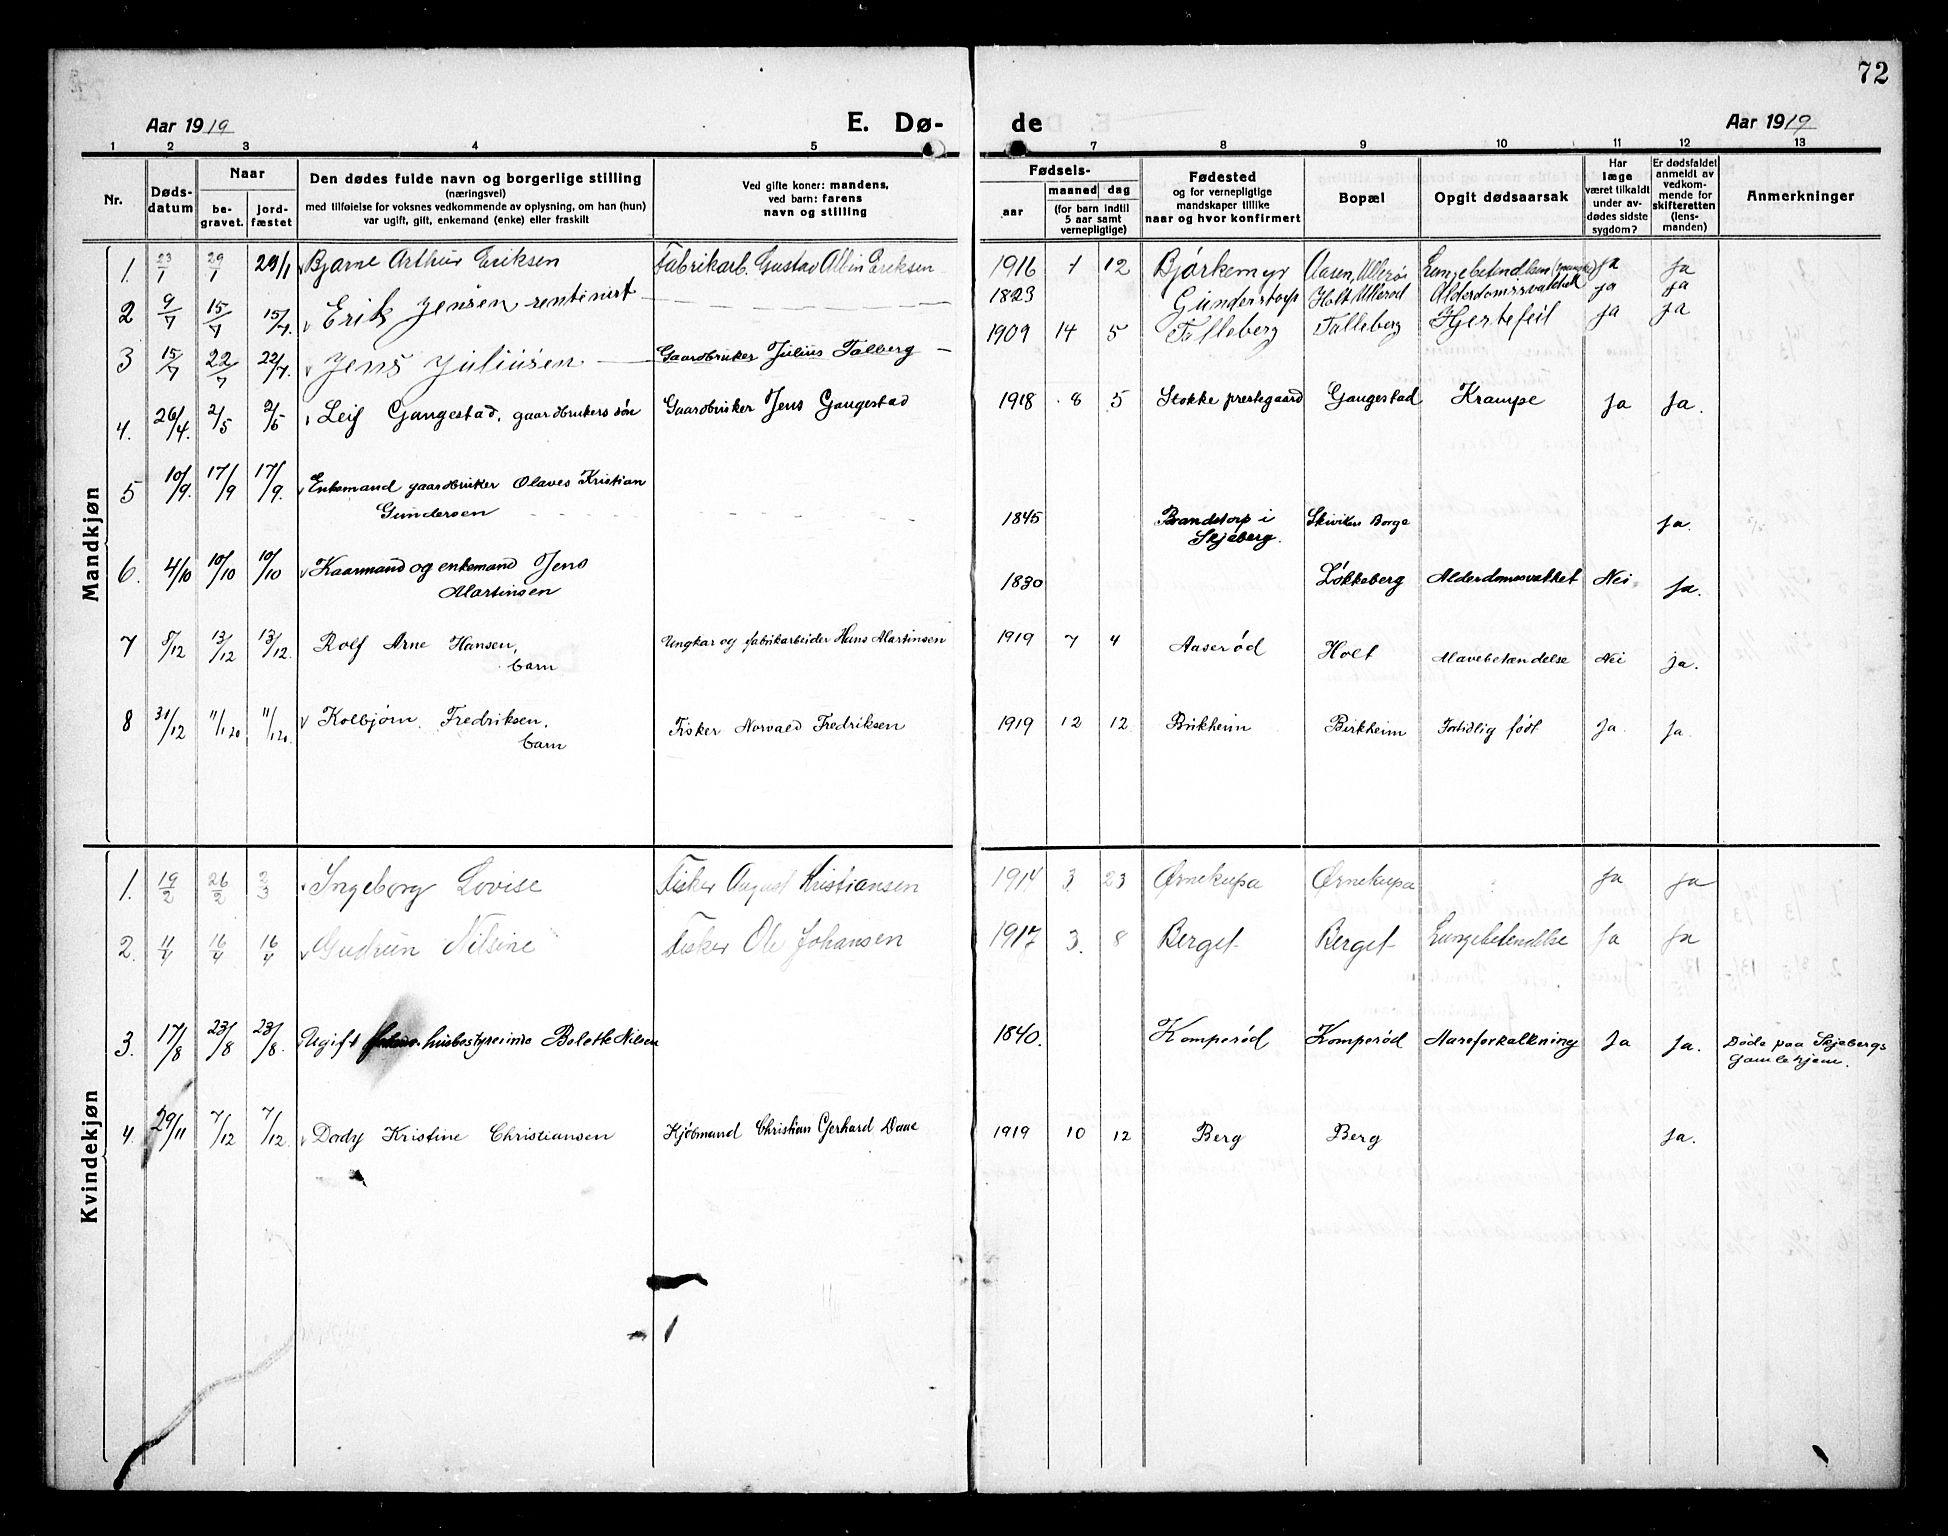 72
Aar 1919 E. Dø- de Aar 1919
1 2 3 4 5 7 8 9 10 11 12 13
Nr. Døds-datum Naar begravet. jordfæstet Den dødes fulde navn og borgerlige stilling (næringsvei) med tilføielse for voksnes vedkommende av oplysning, om han (hun) var ugift, gift, enkemand (enke) eller fraskilt Ved gifte koner: mandens, ved barn: farens navn og stilling Fødsels- aar maaned dag (for barn indtil 5 aar samt vernepligtige) Fødested og for vernepligtige mandskaper tillike naar og hvor konfirmert Bopæl Opgit dødsaarsak Har læge været tilkaldt under avdødes sidste sygdom? Er dødsfaldet anmeldt av vedkommende for skifteretten (lensmanden) Anmerkninger
Mandkjøn
1. 23/1 29/1 29/1 Bjarne Arthur Eriksen Fabrikarb. Gustav Albin Eriksen 1916 1 12 Bjørkemyr Aasen, Ullerøi ja ja
2 9/7 15/7 15/7. Erik Jensen rentenist 1823 Gunderstorp Holt Ullerød ja ja
3 15/7 22/7 22/7. Jens Juliusen Gaardbruker Julius Talberg 1909 14 5 Talleberg Talleberg Hjertefeil ja ja
4. 26/4. 2/5 2/5 Leif Gangestad, gaardbrukers søn Gaardbruker Jens Gangestad 1918 8 5 Stokke prestegaard Gangestad Krampe ja ja.
5 10/9. 17/9 17/9. Enkemand gaardbruker Olaves Kristian
Gundersen 1845 Brandstorp i Skjeberg. Skiviken Borge ja.
6. 4/10 10/10 10/10 Kaarmand og enkemand Jens
Martinsen 1830 Løkkeberg Alderdomsvækket Nei ja.
7 8/12 13/12 13/12. Rolf Arne Hansen, barn Ungkar og fabrikarbeider Hans Martinsen 1919 7 4 Aaserød Holt Mavebetændelse Nei ja.
8 31/12 11/1 20 11/1 20. Kolbjørn Fredriksen, barn Fisker Norvald Fredriksen 1919 12 12 Birkheim Birkheim Fortidlig født Ja. ja.
Kvindekjøn
1. 19/2 26/2 2/3 Ingeborg Lovise Fisker August Kristiansen 1914 3 23 Ørnekupa Ørnekupa ja ja
2. 11/4 16/4 16/4 Gudrun Nilsine Fisker Ole Johansen 1917 3. 8 Berget Berget Lungebetendelse ja ja
3. 17/8 23/8 23/8. Ugift husbestyrerinde Bolette Nilsen 1840. Komperød Komperød Aareforkalkning Ja ja. Døde paa Skjebergs
Gamlehjem.
4. 29/11 7/12 7/12. Dody Kristine Christiansen Kjøbmand Christian Gerhard Daae 1919 10 12 Berg Berg ja.